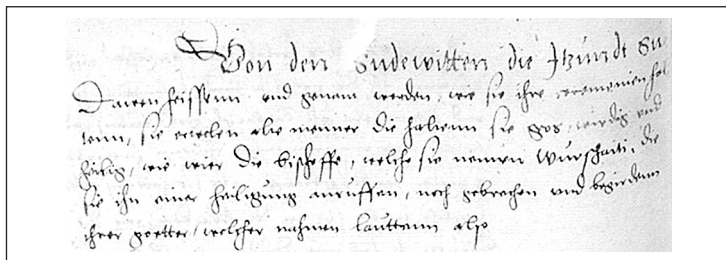 Von den Sudewitten die Itzundt Su
Dawen heissenn und genant werden, wie sie ihre ceremonien hal
tenn, sie erwelen alte menner die haltenn sie gros, wirdig und
heilig, wie wier die bischoffe, welche sie nennen Wurschaiti, die
sie ihn einer heiligung anruffen, noch gebrechen und begirdenn
ihrer goetter, welcher nahmen lauttenn also